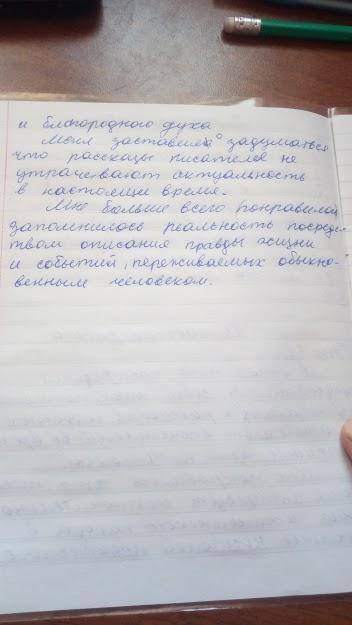 и благородного духа
Меня заставило задуматься
что рассказы писателя не
утрачевают актуальность
в настоящи время.
Мне больше всего понравилось
запомнилось реальность посредс
твом описания правды жизни
и событий, переживаемых обыкно-
венным человеком.